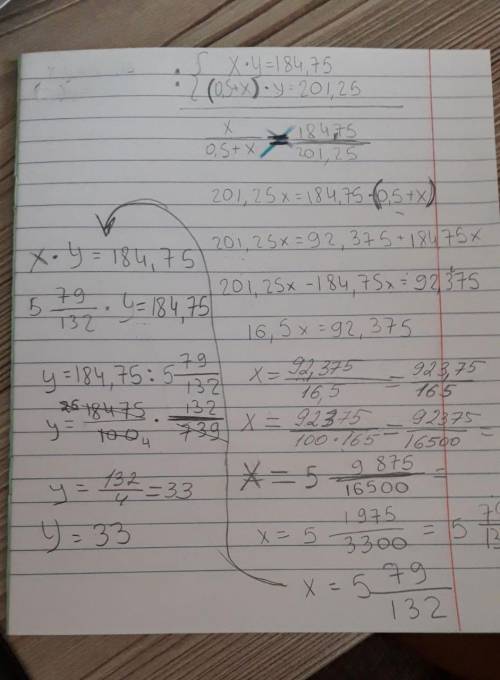 : { x·y=184,75
(0,5+x)·y=201,25
x/(0,5+x) = 184,75/201,25
201,25x=184,75·(0,5+x)
201,25x=92,375+184,75x
201,25x-184,75x=92,375
16,5x=92,375
x=92,375/16,5=923,75/165
x=92375/(100·165)=92375/16500=
x=5 9875/16500=
x=5 1975/3300=5
x=5 79/132
x·y=184,75
5 79/132·y=184,75
y=184,75:5 79/132
y=18475/100·132/739
25 4
y=132/4=33
y=33